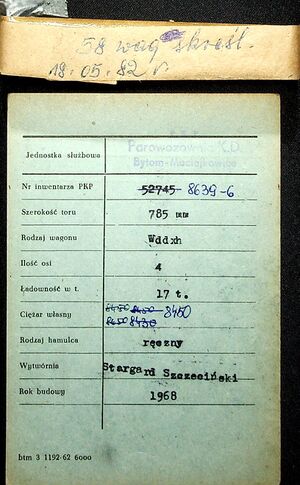 58 wag skreśl.
18.05.82 r.
Parowozownia K.D.
Bytom-Maciejkowice
Jednostka służbowa
Nr inwentarza PKP 52745 8639-6
Szerokość toru 785 mm
Rodzaj wagonu Wddxh
Ilość osi 4
Ładowność w t. 17 t.
Ciężar własny 8450 8450 8450
8650 8430
Rodzaj hamulca ręczny
Wytwórnia Stargard Szczeciński
Rok budowy 1968
btm 3 1192-62 6000